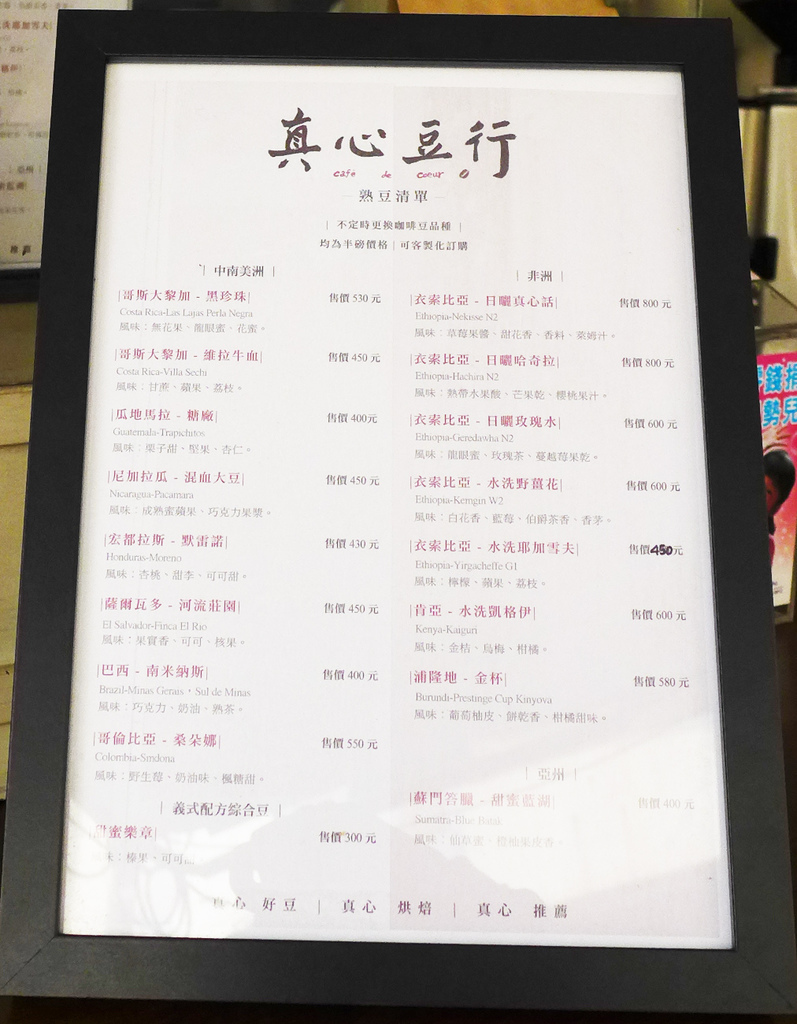 真心豆行
café de coeur
熟豆清單
| 不定時更換咖啡豆品種 |
均為半磅價格 | 可客製化訂購
| 中南美洲 |
|哥斯大黎加 - 黑珍珠| 售價 530 元
Costa Rica-Las Lajas Perla Negra
風味：無花果、龍眼蜜、花蜜。
|哥斯大黎加 - 維拉牛血| 售價 450 元
Costa Rica-Villa Sechi
風味：甘蔗、蘋果、荔枝。
|瓜地馬拉 - 糖廠| 售價 400元
Guatemala-Trapichitos
風味：栗子甜、堅果、杏仁。
|尼加拉瓜 - 混血大豆| 售價 450 元
Nicaragua-Pacamara
風味：成熟蜜蘋果、巧克力果漿。
|宏都拉斯 - 默雷諾| 售價 430 元
Honduras-Moreno
風味：杏桃、甜李、可可甜。
|薩爾瓦多 - 河流莊園| 售價 450 元
El Salvador-Finca El Rio
風味：果實香、可可、核果。
|巴西 - 南米納斯| 售價 400 元
Brazil-Minas Gerais，Sul de Minas
風味：巧克力、奶油、熟茶。
|哥倫比亞 - 桑朵娜| 售價 550 元
Colombia-Sindona
風味：野生莓、奶油味、楓糖甜。
| 義式配方綜合豆 |
甜蜜樂章| 售價 300 元
味：榛果、可可
| 非洲 |
|衣索比亞 - 日曬真心話| 售價 800 元
Ethiopia-Nekisse N2
風味：草莓果醬、甜花香、香料、萊姆汁。
|衣索比亞 - 日曬哈奇拉| 售價 800 元
Ethiopia-Hachira N2
風味：熱帶水果酸、芒果乾、櫻桃果汁。
|衣索比亞 - 日曬玫瑰水| 售價 600 元
Ethiopia-Geredawha N2
風味：龍眼蜜、玫瑰茶、蔓越莓果乾。
|衣索比亞 - 水洗野薑花| 售價 600 元
Ethiopia-Kemgin W2
風味：白花香、藍莓、伯爵茶香、香茅。
|衣索比亞 - 水洗耶加雪夫| 售價450元
Ethiopia-Yirgacheffe G1
風味：檸檬、蘋果、荔枝。
|肯亞 - 水洗凱格伊| 售價 600 元
Kenya-Kaiguri
風味：金桔、烏梅、柑橘。
|浦隆地 - 金杯| 售價 580 元
Burundi-Prestinge Cup Kinyova
風味：葡萄柚皮、餅乾香、柑橘甜味。
| 亞州 |
|蘇門答臘 - 甜蜜藍湖| 售價 400 元
Sumatra-Blue Batak
風味：仙草蜜、橙柚果皮香。
真心 好豆 | 真心 烘焙 | 真心 推薦